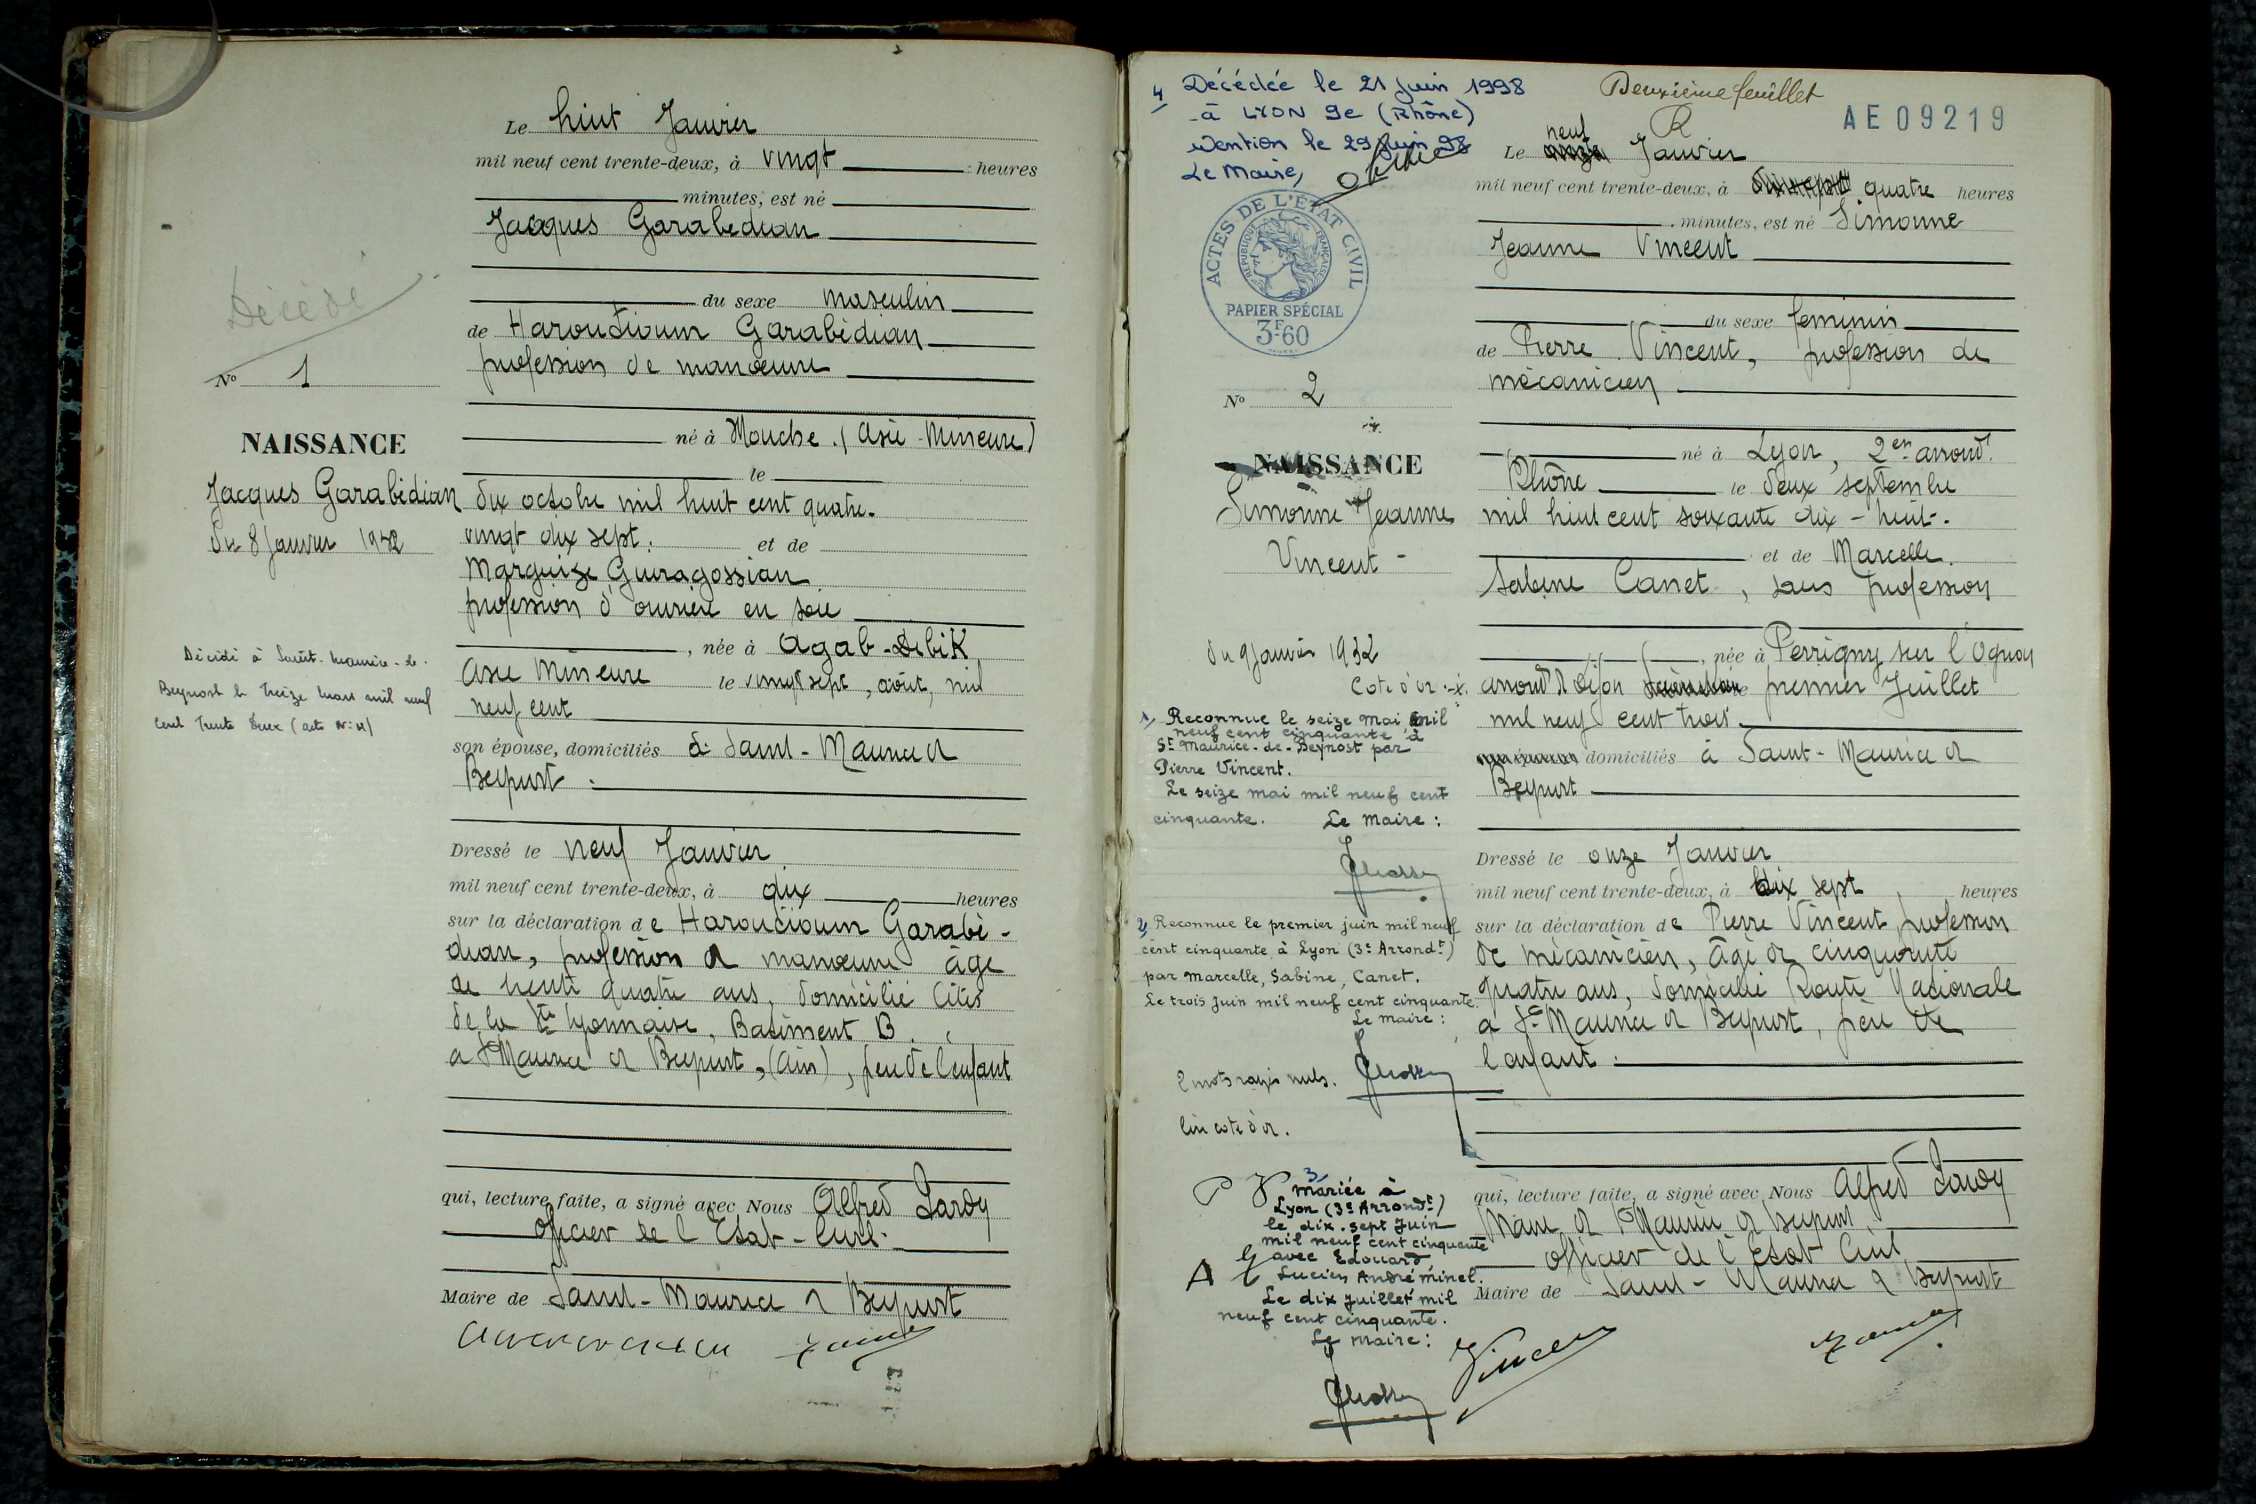 Le huit Janvier
mil neuf cent trente-deux, à vingt heures
minutes, est né
Jacques Garabedian
du sexe masculin
de Haroutioum Garabédian
profession de manœuvre
né à Mouche. (Asie-Mineure)
le
dix octobre mil huit cent quatre-
vingt dix sept. et de
Marguize Guiragossian
profession d'ouvrière en soie
, née à Agab-Debik
Asie Mineure le vingt sept, août, mil
neuf cent
son épouse, domiciliés à Saint-Maurice de
Beynost.
Dressé le neuf Janvier
mil neuf cent trente-deux, à dix heures
sur la déclaration de Haroutioum Garabé-
dian, profession de manœuvre âgé
de trente quatre ans, domicilié Cités
de la Sté Lyonnaise, Batiment B.
a St Maurice de Beynost, (Ain), père de l'enfant
qui, lecture faite, a signé avec Nous Alfred Lardy
Officier de l'Etat-Civil.
Maire de Saint-Maurice de Beynost
Décédé
No 1
NAISSANCE
Jacques Garabédian
du 8 Janvier 1932
Décédé à Saint-Maurice-de-
Beynost le treize mars mil neuf
cent trente deux (acte No 4)
4 Décédée le 21 Juin 1998
à LYON 9e (Rhône)
Mention le 29 Juin 98
Le Maire,
ACTES DE L'ÉTAT CIVIL
RÉPUBLIQUE FRANÇAISE
PAPIER SPÉCIAL
3F60
No 2
NAISSANCE
Simonne Jeanne
Vincent -
du 9 Janvier 1932
Cote d'or
1, Reconnue le seize mai mil
neuf cent cinquante à
St Maurice-de-Beynost par
Pierre Vincent.
Le seize mai mil neuf cent
cinquante. Le Maire :
2, Reconnue le premier juin mil neuf
cent cinquante à Lyon (3e Arrondt)
par Marcelle, Sabine, Canet.
Le trois Juin mil neuf cent cinquante.
Le maire :
mots rayés nuls.
cote d'or.
3
mariée à
Lyon (3e Arrondt)
le dix-sept Juin
mil neuf cent cinquante
avec Edouard
Lucien André Minel.
Le dix Juillet mil
neuf cent cinquante.
Le maire :
Deuxième feuillet
AE 09219
Le neuf Janvier
mil neuf cent trente-deux, à quatre heures
minutes, est né Simonne
Jeanne Vincent
du sexe feminin
de Pierre Vincent, profession de
mécanicien
né à Lyon, 2e arrondt
Rhône le deux septembre
mil huit cent soixante dix-huit.
et de Marcelle
Sabine Canet, sans profession
, née à Perrigny sur l'Ognon
arrondt de Dijon premier Juillet
mil neuf cent trois.
domiciliés à Saint-Maurice de
Beynost
Dressé le onze Janvier
mil neuf cent trente-deux, à dix sept heures
sur la déclaration de Pierre Vincent profession
de mécanicien, âgé de cinquante
quatre ans, domicilié Route Nationale
a St Maurice de Beynost, père de
l'enfant.
qui, lecture faite, a signé avec Nous Alfred Lardy
Maire de St Maurice de Beynost,
officier de l'Etat Civil
Maire de Saint-Maurice de Beynost
Vincent